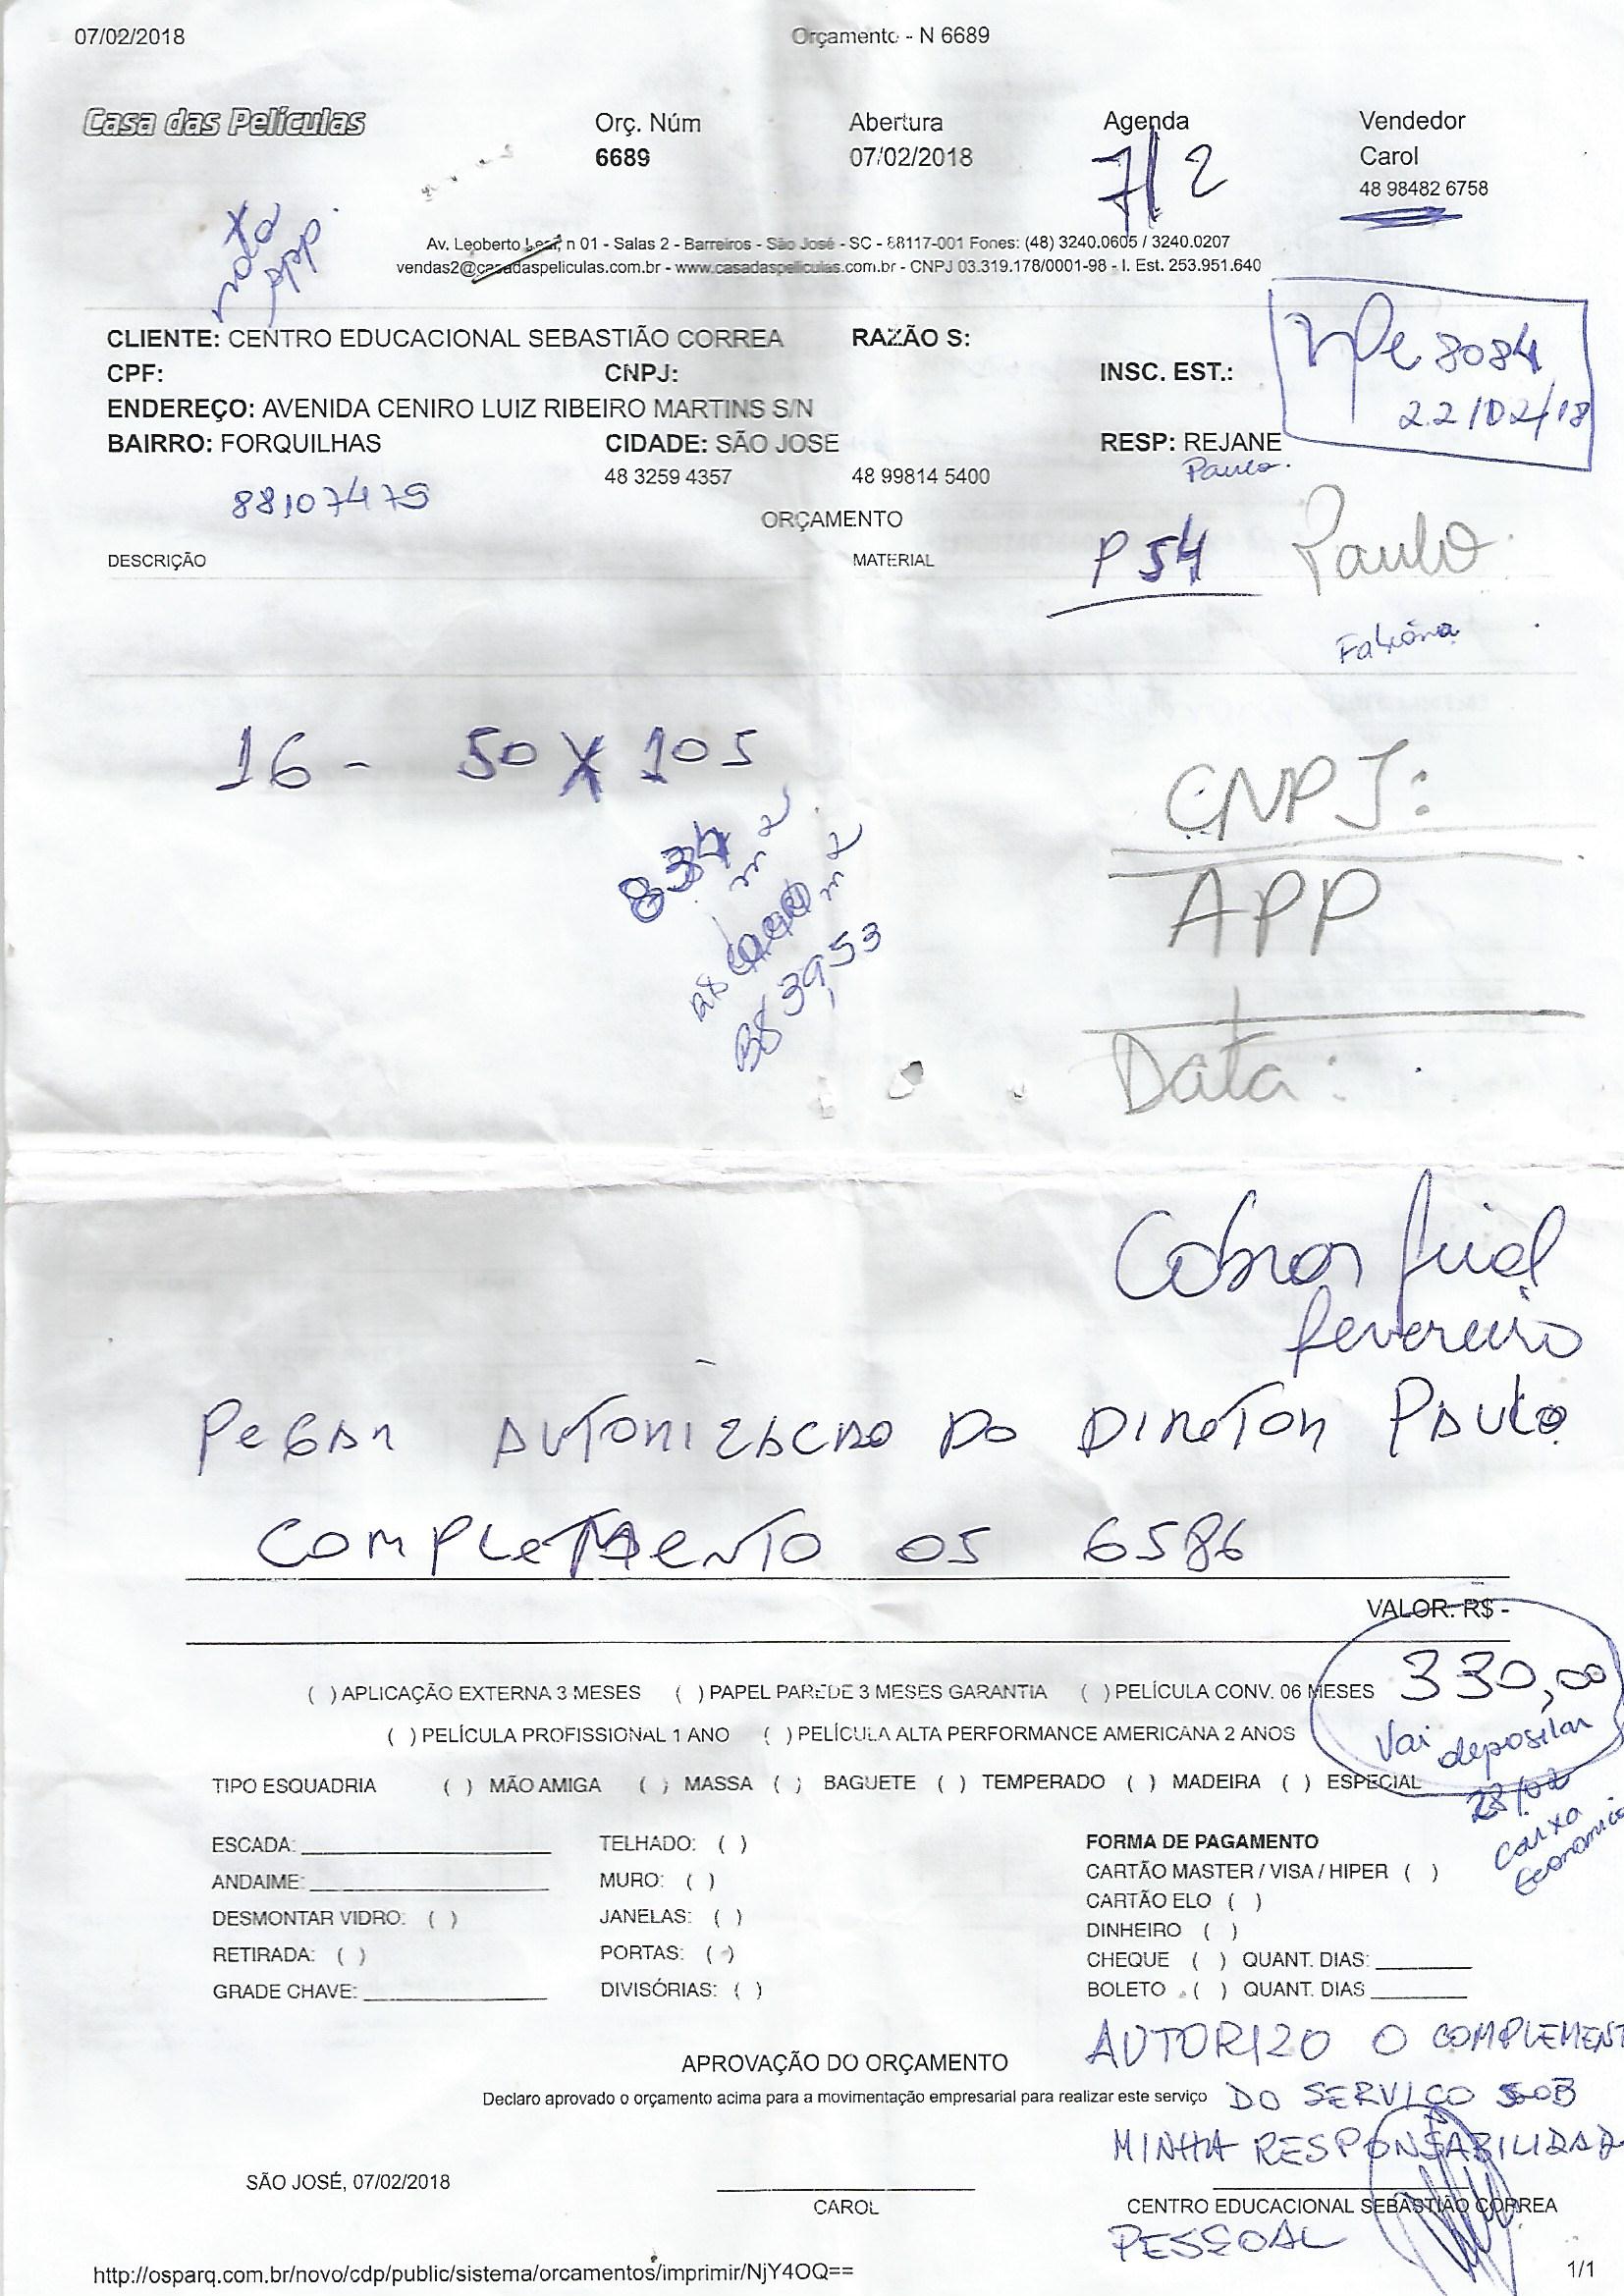 07/02/2018 Orçamento - N 6689
Casa das Películas Orç. Núm Abertura Agenda Vendedor
6689 07/02/2018 7/2 Carol
48 98482 6758
nota
APP.
Av. Leoberto Leal, n 01 - Salas 2 - Barreiros - São José - SC - 88117-001 Fones: (48) 3240.0605 / 3240.0207
vendas2@casadaspeliculas.com.br - www.casadaspeliculas.com.br - CNPJ 03.319.178/0001-98 - I. Est. 253.951.640
CLIENTE: CENTRO EDUCACIONAL SEBASTIÃO CORREA RAZÃO S:
8084
22/02/18
CPF: CNPJ: INSC. EST.:
ENDEREÇO: AVENIDA CENIRO LUIZ RIBEIRO MARTINS S/N
BAIRRO: FORQUILHAS CIDADE: SÃO JOSE RESP: REJANE
48 3259 4357 48 99814 5400 Paulo.
88107475
ORÇAMENTO
DESCRIÇÃO MATERIAL P 54 Paulo.
Fabiana
16 - 50 X 105
834 m2
m2
39,53
CNPJ:
APP
Data:
Cobrar final
fevereiro
PEGAR AUTORIZACAO DO DIRETOR PAULO
COMPLEMENTO OS 6586
VALOR: R$ -
330,00
( ) APLICAÇÃO EXTERNA 3 MESES ( ) PAPEL PAREDE 3 MESES GARANTIA ( ) PELÍCULA CONV. 06 MESES
( ) PELÍCULA PROFISSIONAL 1 ANO ( ) PELÍCULA ALTA PERFORMANCE AMERICANA 2 ANOS
Vai depositar
28/02
Caixa
Economica
TIPO ESQUADRIA ( ) MÃO AMIGA ( ) MASSA ( ) BAGUETE ( ) TEMPERADO ( ) MADEIRA ( ) ESPECIAL
ESCADA: TELHADO: ( ) FORMA DE PAGAMENTO
ANDAIME: MURO: ( ) CARTÃO MASTER / VISA / HIPER ( )
DESMONTAR VIDRO: ( ) JANELAS: ( ) CARTÃO ELO ( )
RETIRADA: ( ) PORTAS: ( ) DINHEIRO ( )
GRADE CHAVE: DIVISÓRIAS: ( ) CHEQUE ( ) QUANT. DIAS:
BOLETO ( ) QUANT. DIAS
AUTORIZO O COMPLEMENT
APROVAÇÃO DO ORÇAMENTO
Declaro aprovado o orçamento acima para a movimentação empresarial para realizar este serviço
DO SERVIÇO SOB
MINHA RESPONSABILIDAD
SÃO JOSÉ, 07/02/2018
CAROL CENTRO EDUCACIONAL SEBASTIÃO CORREA
PESSOAL
http://osparq.com.br/novo/cdp/public/sistema/orcamentos/imprimir/NjY4OQ== 1/1